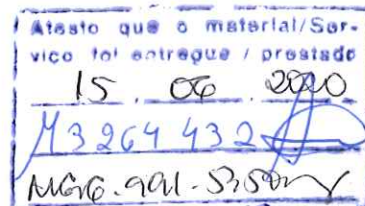 Atesto que o material/Ser-
viço foi entregue / prestado
15 . 06 . 2020
M3264432